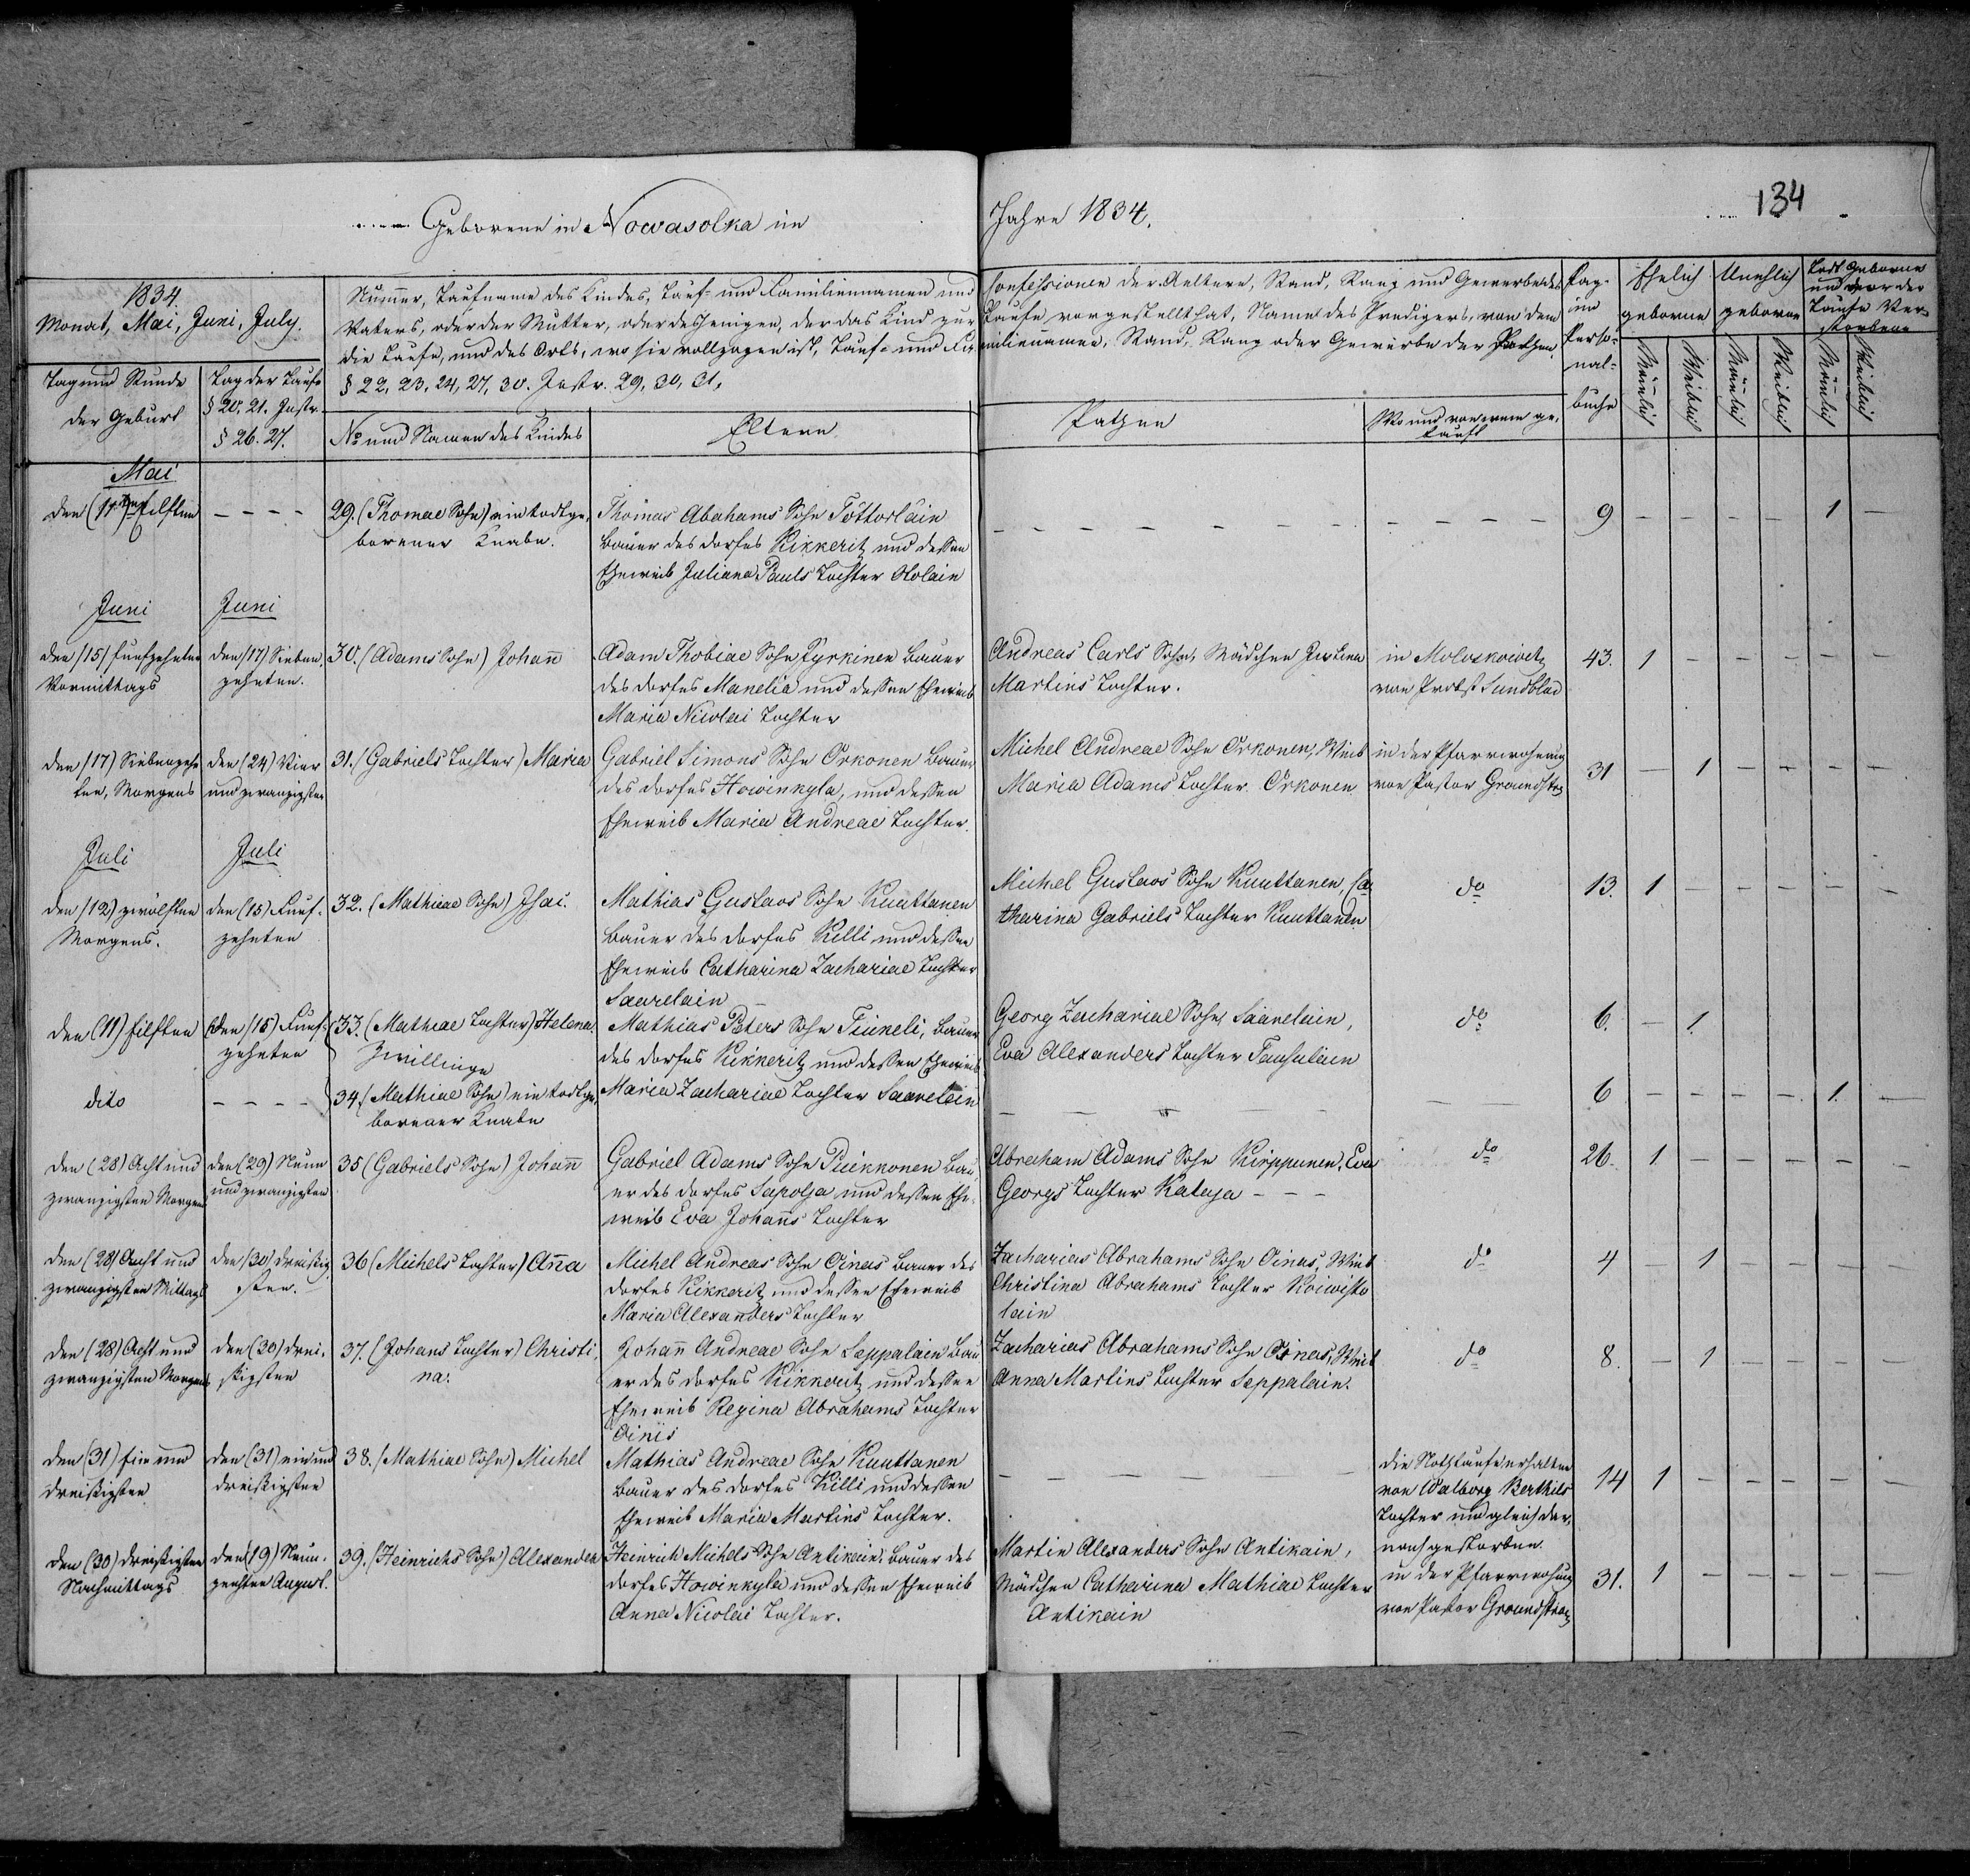 Geborene in Nowasolka im Jahre 1834.
134
1834.
Monat, Mai, Juni, July.
Tag und Stunde
der Geburt
Tag der Taufe
§ 20. 21. Instr.
§ 26. 27.
Num̄er, Taufname des Kindes, Tauf- und Familiennamen und Confessionen der Aeltern, Stand, Rang und Gewerbe des
Vaters, oder der Mutter, oder desjenigen, der das Kind zur Taufe vorgestellt hat, Name des Predigers, von dem
die Taufe, und des Orts, wo sie vollzogen ist, Tauf- und Familiennamen, Stand, Rang oder Gewerbe der Pathen.
§ 22, 23, 24, 27, 30. Instr. 29, 30, 31,
No und Namen des Kindes
Eltern
Pathen
Wo und von wem ge-
tauft
Pag.
im
Perso-
nal-
buche
Ehelich
geborne
Unehlich
geborene
Todt Geborne
und vor der
Taufe Ver-
storbene
Mänlich
Weiblich
Mänlich
Weiblich
Mänlich
Weiblich
Mai
den (11ten) Eilften
- - - -
29. (Thomae Sohn) ein todtge-
borener Knabe.
Thomas Abahams Sohn Tottorlain
Bauer des Dorfes Kikkeritz und dessen
Eheweib Juliana Pauls Tochter Holain
- - - - - - - - - - 9 - - - - 1 -
Juni
Juni
den (15) funfzehnten
Vormittags
den (17) Sieben-
zehnten.
30. (Adams Sohn) Johan̄
Adam Thobiae Sohn Pyrkinen Bauer
des Dorfes Manelia und dessen Eheweib
Maria Nicolai Tochter
Andreas Carls Sohn, Mädchen Justina
Martins Tochter.
in Moloskowitz
von Probst Sundblad
43. 1 - - - - -
den (17) Siebenzehn
ten, Morgens
den (24) Vier
und zwanzigsten
31. (Gabriels Tochter) Maria
Gabriel Simons Sohn Orkonen Bauer
des Dorfes Howinkyla, und dessen
Eheweib Maria Andreae Tochter.
Michel Andreae Sohn Orkonen, Weib
Maria Adams Tochter Orkonen
in der Pfarrwohnung
von Pastor Groundstroem
31 - 1 - - - -
Juli
Juli
den (12) zwölften
Morgens.
den (15) Funf-
zehnten
32. (Mathiae Sohn) Isai.
Mathias Gustavs Sohn Kuuttanen
Bauer des Dorfes Killi und dessen
Eheweib Catharina Zachariae Tochter
Saarelain
Michel Gustavs Sohn Kuuttanen, Ca
tharina Gabriels Tochter Kuuttanen
do
13. 1 - - - - -
den (11) Eilften
den (15) Funf-
zehnten
33. (Mathiae Tochter) Helena
Zwillinge
Mathias Peters Sohn Tiuneli, Bauer
des Dorfes Kikkeritz und dessen Eheweib
Maria Zachariae Tochter Saarelain
Georg Zachariae Sohn Saarelain,
Eva Alexanders Tochter Tausulain
do
6. - 1
dito
- - - -
34. (Mathiae Sohn) ein todtge-
borener Knabe
- - - - - 6 - - - - 1. -
den (28) Acht und
zwanzigsten Morgens
den (29) Neun
und zwanzigsten
35 (Gabriels Sohn) Johan̄
Gabriel Adams Sohn Puikkonen Bau
er des Dorfes Sapolja und dessen Ehe-
weib Eva Johan̄s Tochter
Abraham Adams Sohn Kirppunen, Eva
Georgs Tochter Kataja - - -
do
26. 1 - - - - -
den (28) Acht und
zwanzigsten Mittags
den (30) dreissig-
sten.
36 (Michels Tochter) An̄a
Michel Andreas Sohn Oinas Bauer des
Dorfes Kikkeritz und dessen Eheweib
Maria Alexanders Tochter
Zacharias Abrahams Sohn Oinas, Weib
Christina Abrahams Tochter Koiwisto
lain
do
4 - 1 - - - -
den (28) Acht und
zwanzigsten Morgens
den (30) drei-
ssigsten
37. (Johans Tochter) Christi-
na.
Johan̄ Andreae Sohn Seppalain Bau
er des Dorfes Kikkeritz und dessen
Eheweib Regina Abrahams Tochter
Oinis
Zacharias Abrahams Sohn Oinas, Weib
Anna Martins Tochter Seppalain.
do
8. - 1 - - - -
den (31) Ein und
dreissigsten
den (31) ein und
dreissigsten
38. (Mathiae Sohn) Michel
Mathias Andreae Sohn Kuuttanen
Bauer des Dorfes Killi und dessen
Eheweib Maria Martins Tochter.
- - - - -
die Nothtaufe erhalten
von Walborg Berthils
Tochter und gleich dar-
nach gestorben.
14 1 - - - - -
den (30) dreissigsten
Nachmittags
den (19) Neun-
zehnten August.
39. (Heinrichs Sohn) Alexander
Heinrich Michels Sohn Antikain, Bauer des
Dorfes Howinkyla und dessen Eheweib
Anna Nicolai Tochter.
Martin Alexanders Sohn Antikain,
Mädchen Catharina Mathiae Tochter
Antikain
in der Pfarrwohnung
von Pastor Groundstroem
31. 1 - - - - -